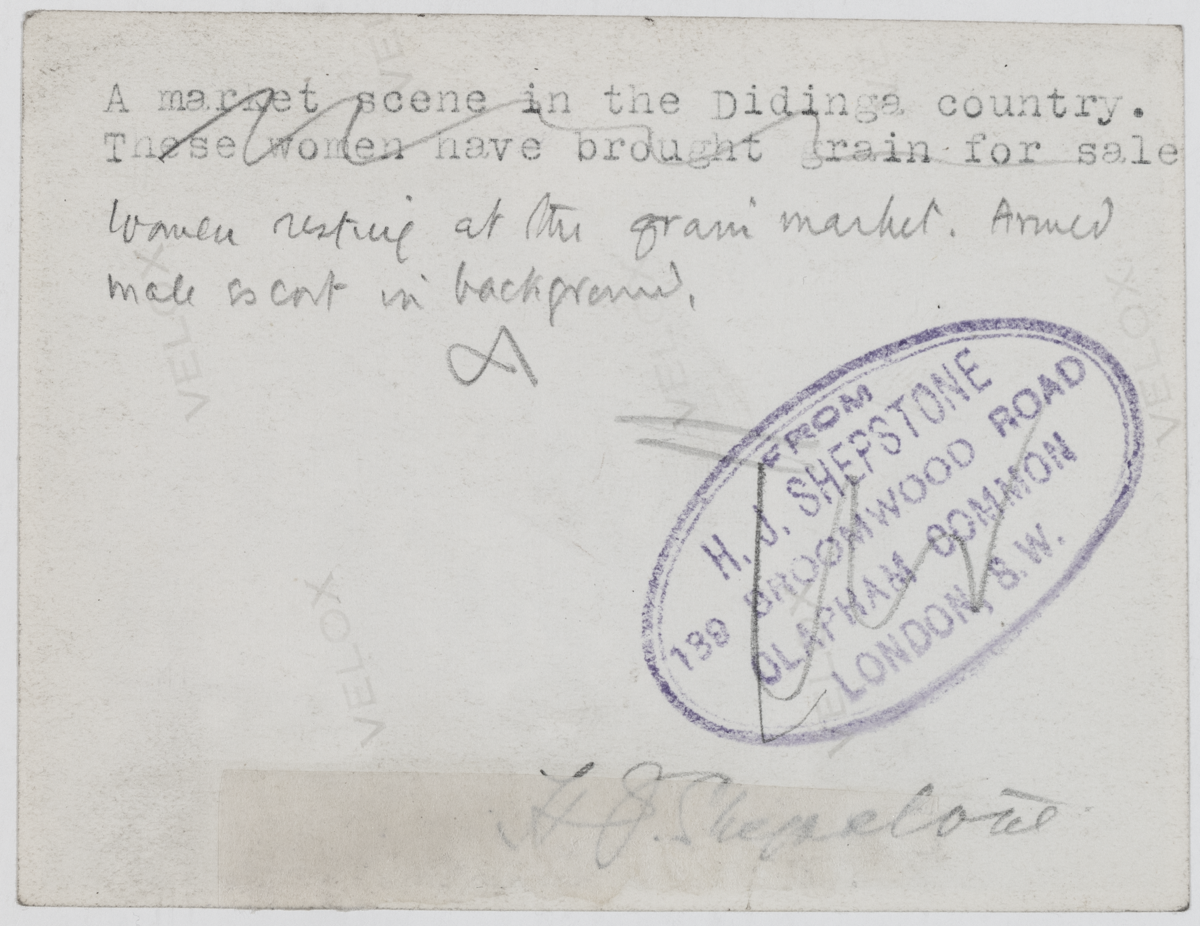 A market scene in the Didinga country.
These women have brought grain for sale
Women resting at the grain market. Armed
male escort in background.
FROM
H. J. SHEPSTONE
139 BROOMWOOD ROAD
CLAPHAM COMMON
LONDON, S.W.
H J. Shepstone
VELOX
VELOX
VELOX
VELOX